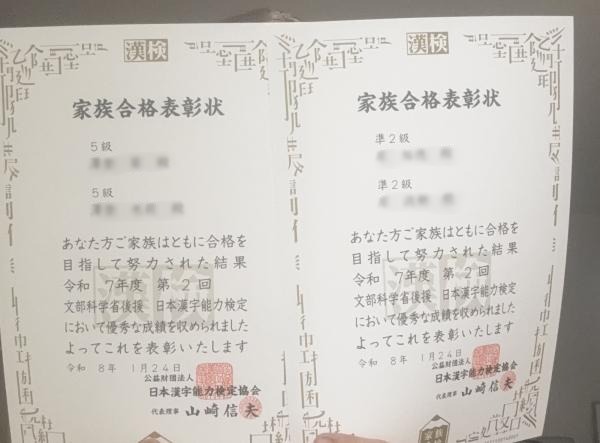 漢検
家族合格表彰状
5級
5級
あなた方ご家族はともに合格を
目指して努力された結果
令和 7年度 第2回
文部科学省後援 日本漢字能力検定
において優秀な成績を収められました
よってこれを表彰いたします
令和 8年 1月24日
公益財団法人
日本漢字能力検定協会
代表理事 山崎信夫
漢検
家族合格表彰状
準2級
準2級
あなた方ご家族はともに合格を
目指して努力された結果
令和 7年度 第2回
文部科学省後援 日本漢字能力検定
において優秀な成績を収められました
よってこれを表彰いたします
令和 8年 1月24日
公益財団法人
日本漢字能力検定協会
代表理事 山崎信夫